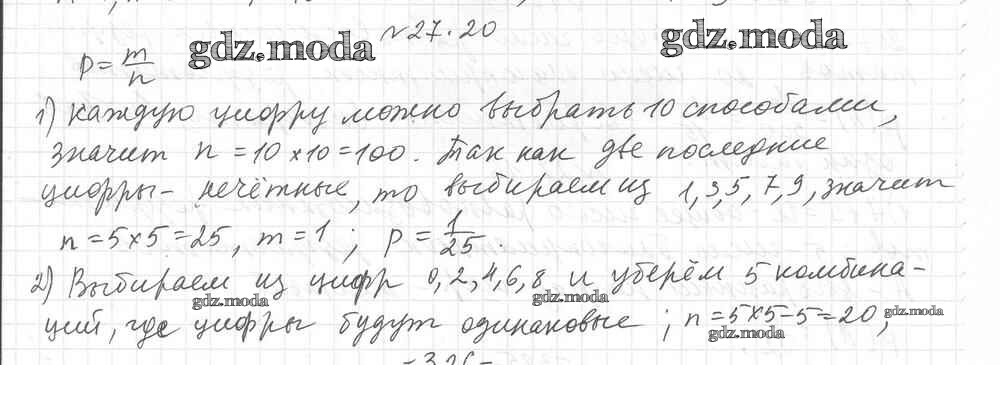 №27.20
gdz.moda
gdz.moda
P = m/n
1) каждую цифру можно выбрать 10 способами,
значит n = 10 × 10 = 100. Так как две последние
цифры – нечётные, то выбираем из 1, 3, 5, 7, 9, значит
n = 5 × 5 = 25, m = 1; P = 1/25.
2) Выбираем из цифр 0, 2, 4, 6, 8 и уберём 5 комбина-
gdz.moda
gdz.moda
ций, где цифры будут одинаковые; n = 5 × 5 – 5 = 20,
gdz.moda
gdz.moda